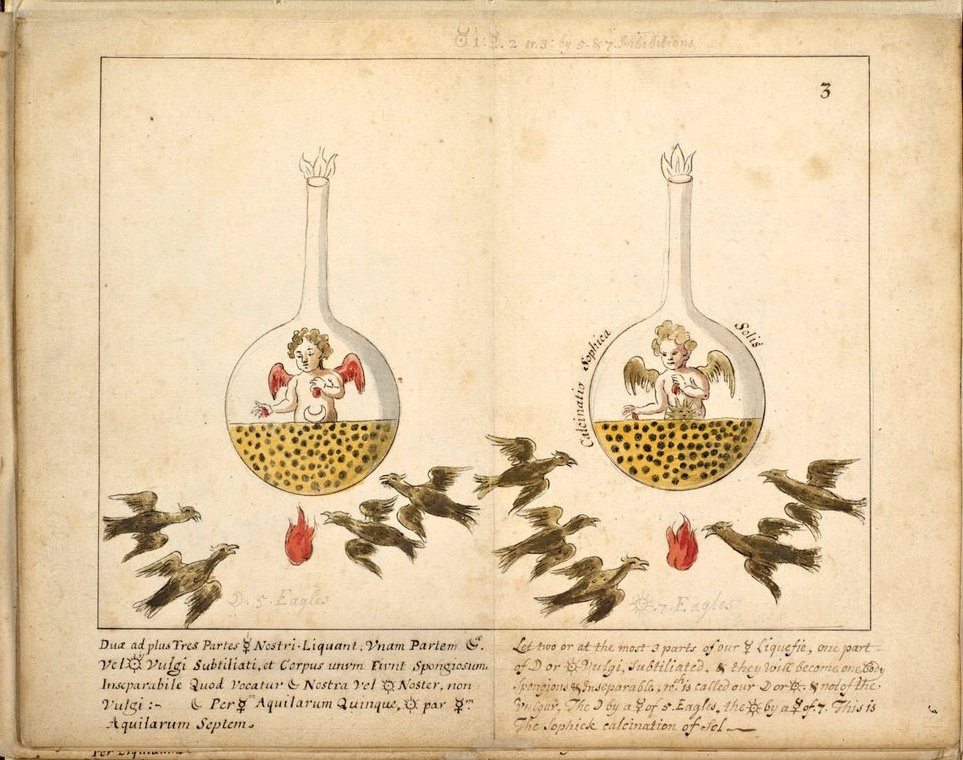 ☿ 1: 2. 2 or 3: by 5. & 7. Imbibitions
3
Calcinatio Sophica
Solis
D. 5. Eagles
☼. 7. Eagles
Duæ ad plus Tres Partes ☿ Nostri Liquant, Vnam Partem ☾.
Vel ☼ Vulgi Subtiliati, et Corpus unum Fiunt Spongiosum,
Inseparabile Quod Vocatur ☾ Nostra Vel ☼ Noster, non
Vulgi :- ☾ Per ☿m Aquilarum Quinque, ☼ par ☿m
Aquilarum Septem.
Let two or at the most 3 parts of our ☿ Liquefie, one part
of D or ☼ Vulgi, Subtiliated, & they will become one body
Spongious & Inseparable, wch is called our D or ☼. & not of the
Vulgar. The D by a ☿ of 5. Eagles, the ☼ by a ☿ of .7. This is
The Sophick calcination of Sol